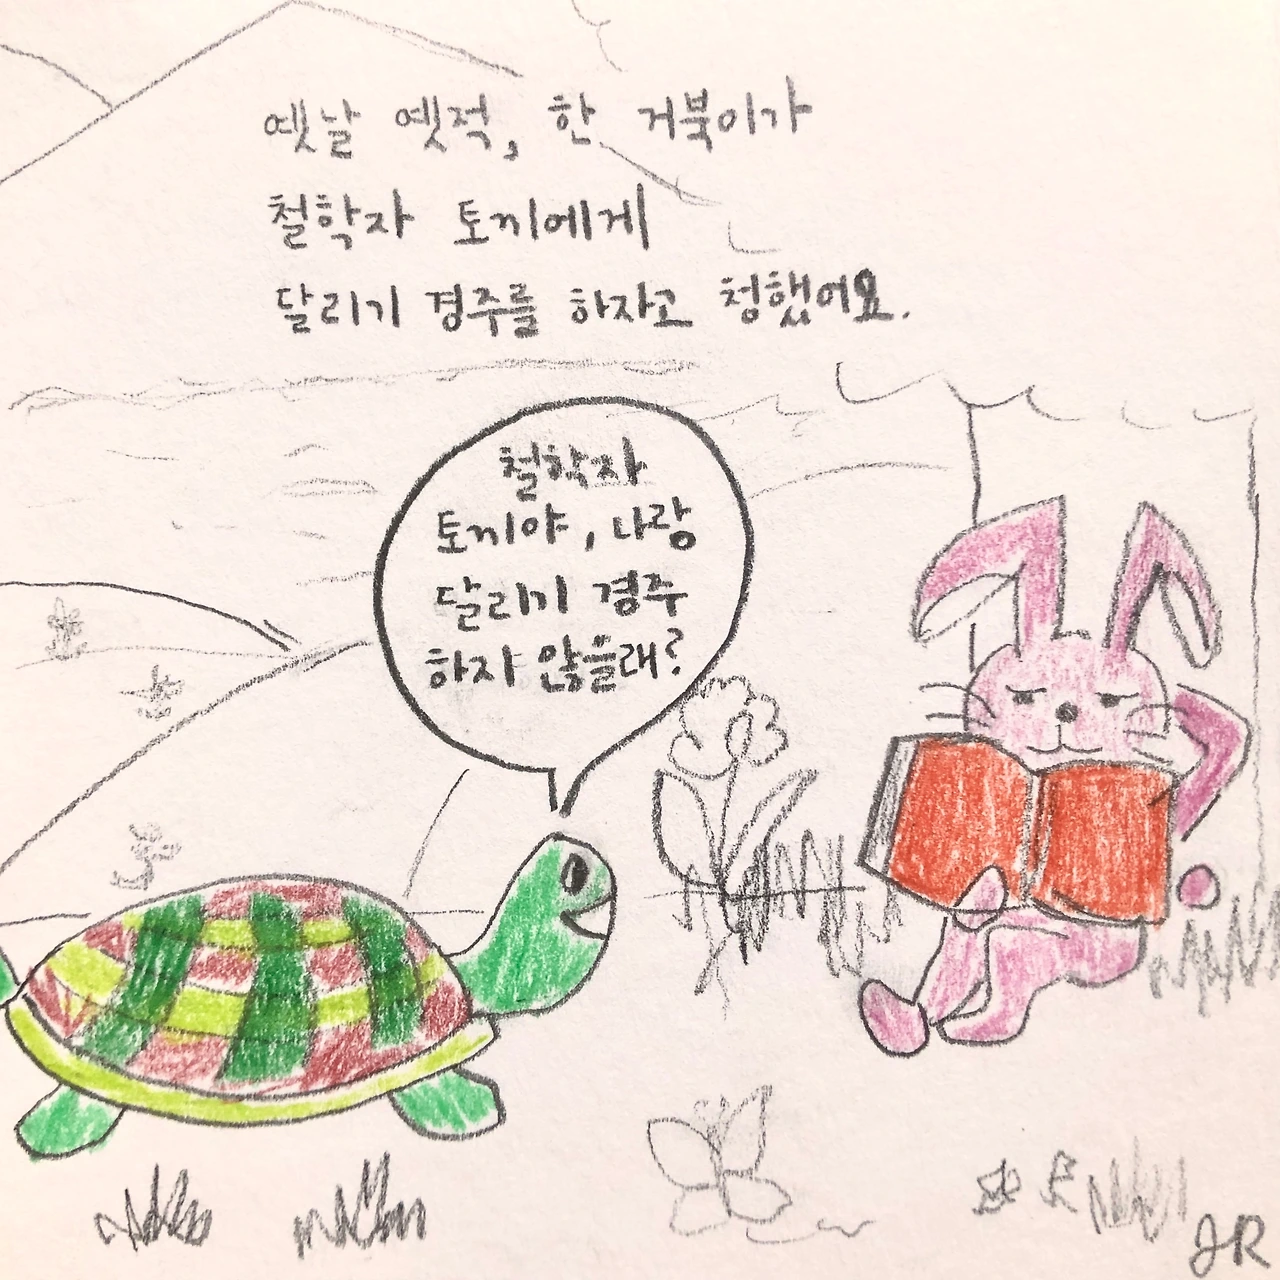 옛날 옛적, 한 거북이가
철학자 토끼에게
달리기 경주를 하자고 청했어요.
철학자
토끼야, 나랑
달리기 경주
하지 않을래?
JR